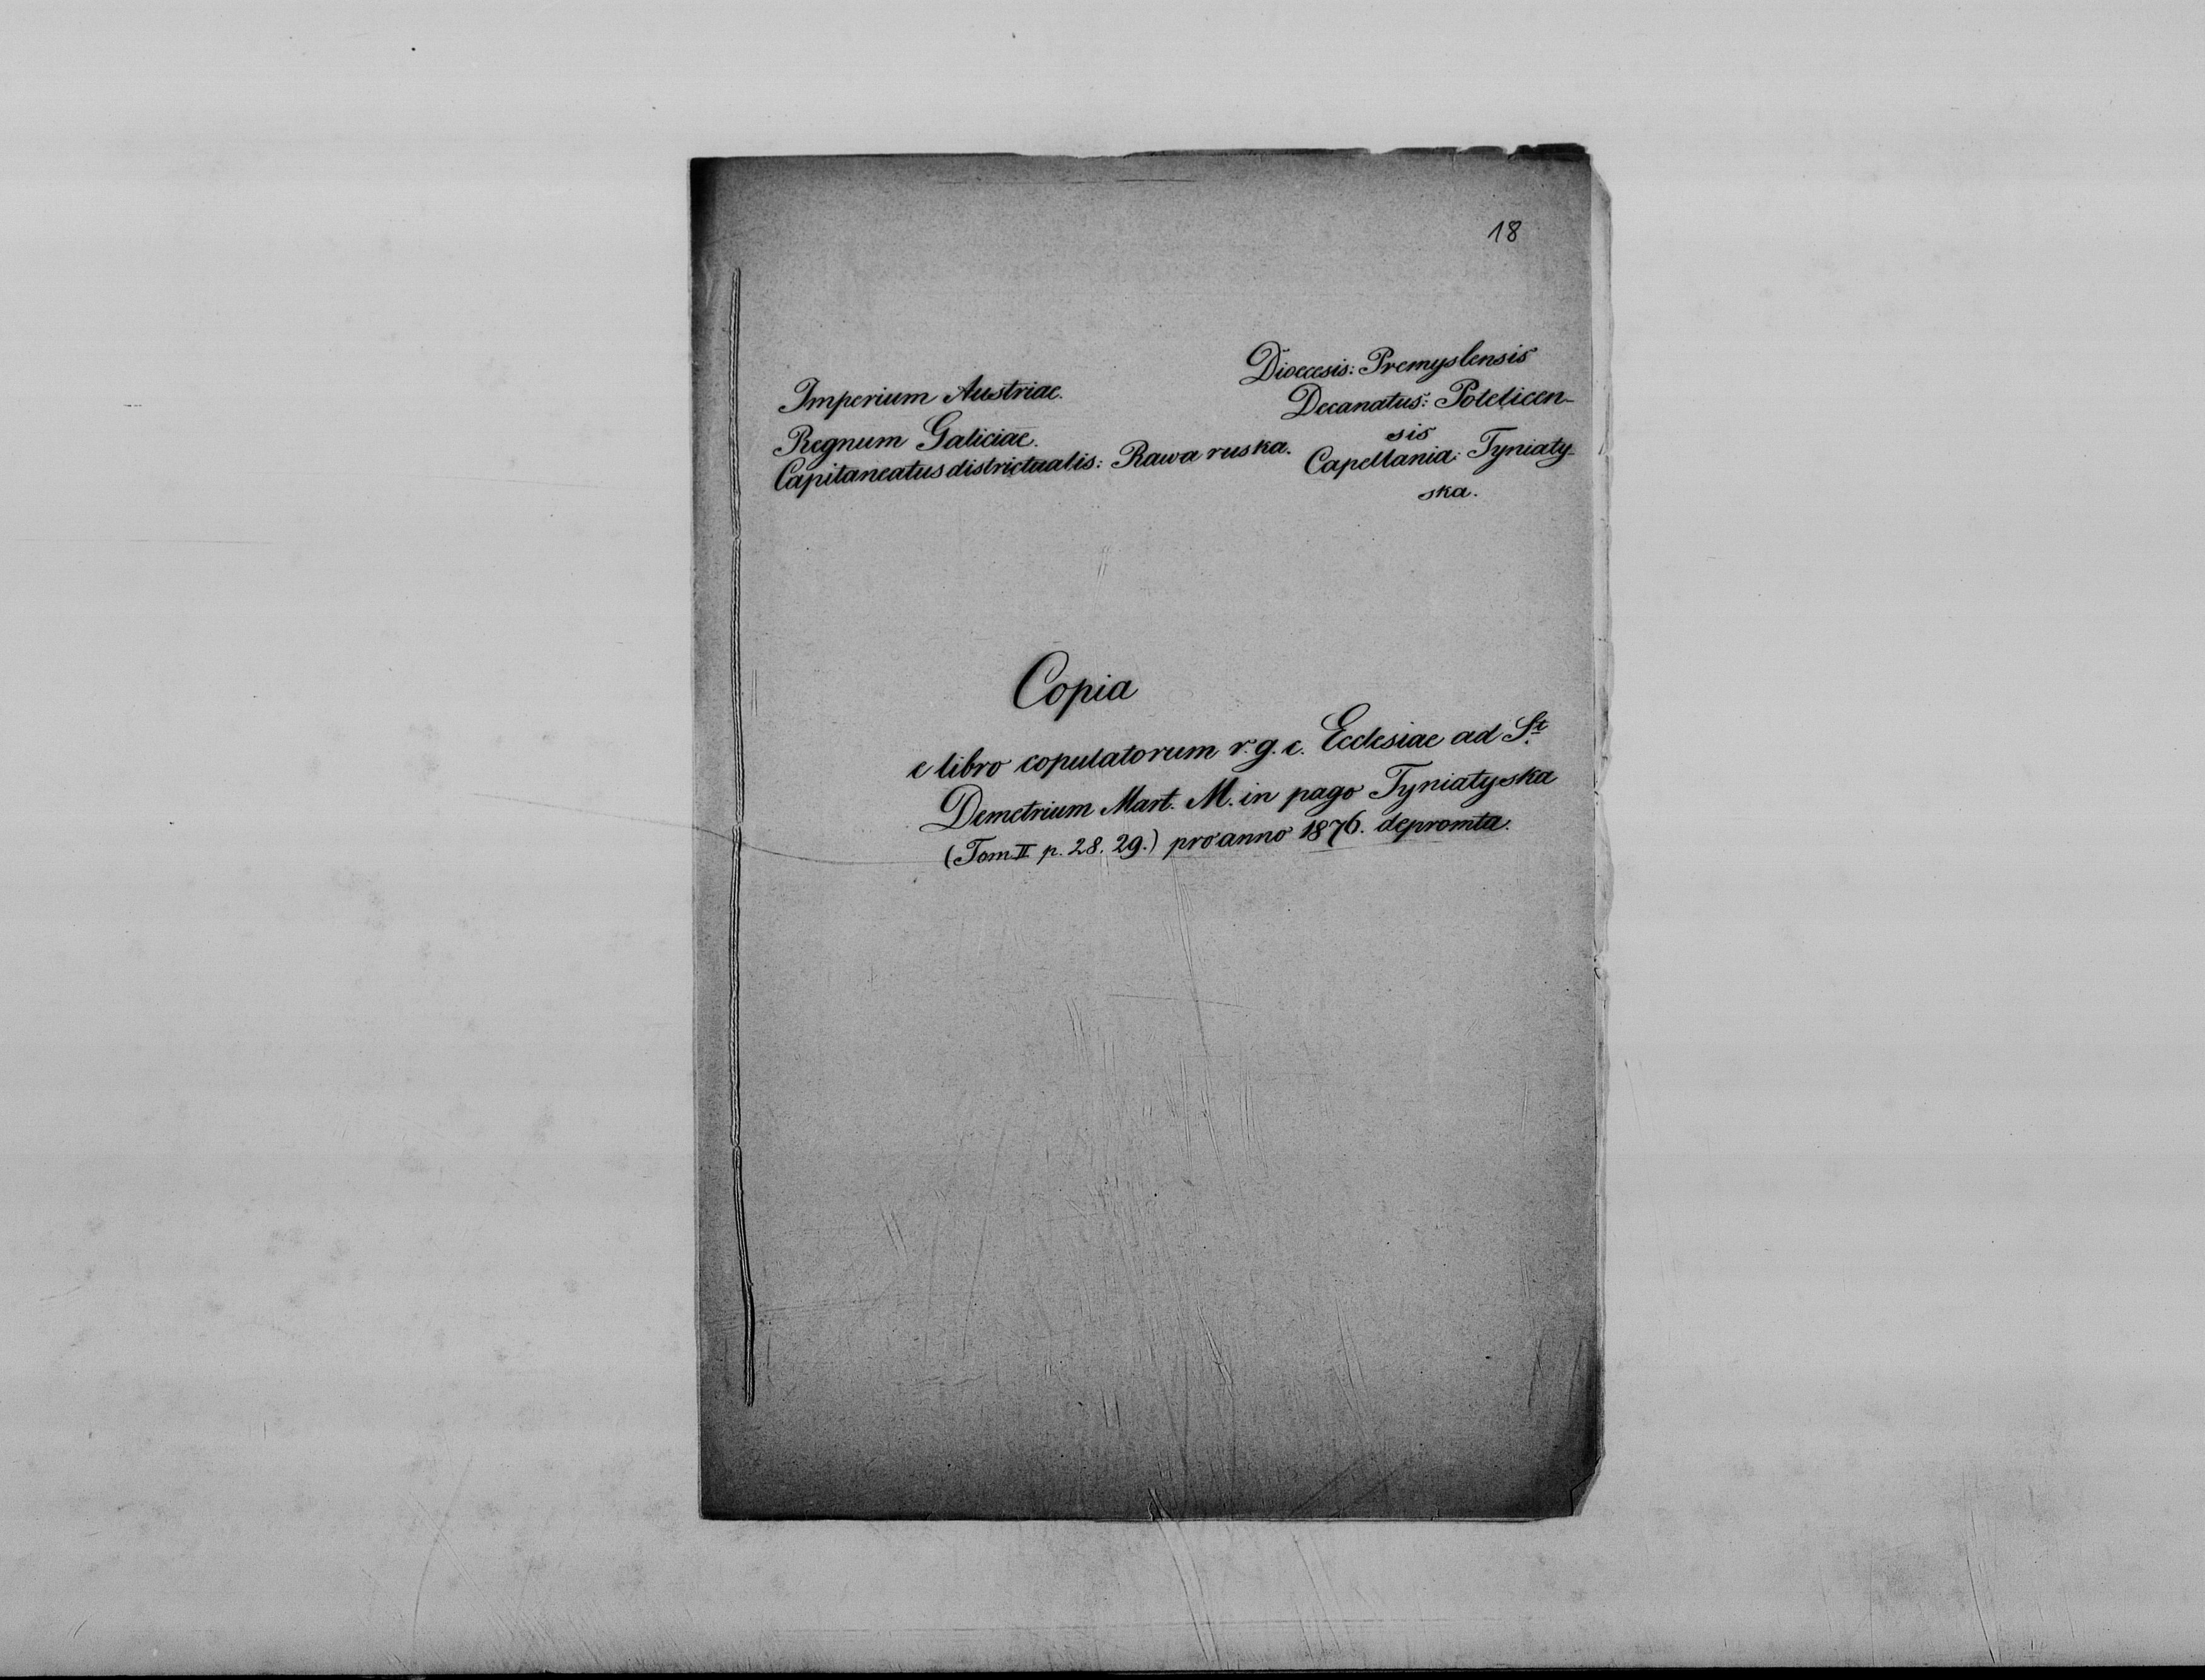 18
Imperium Austriae.
Regnum Galiciae.
Capitaneatus districtualis: Rawa ruska.
Dioecesis: Premyslensis
Decanatus: Potelicen-
sis
Capellania: Tyniaty-
ska.
Copia
e libro copulatorum r. g. c. Ecclesiae ad St.
Demetrium Mart. M. in pago Tyniatyska
(Tom II p. 28. 29.) pro anno 1876. depromta.